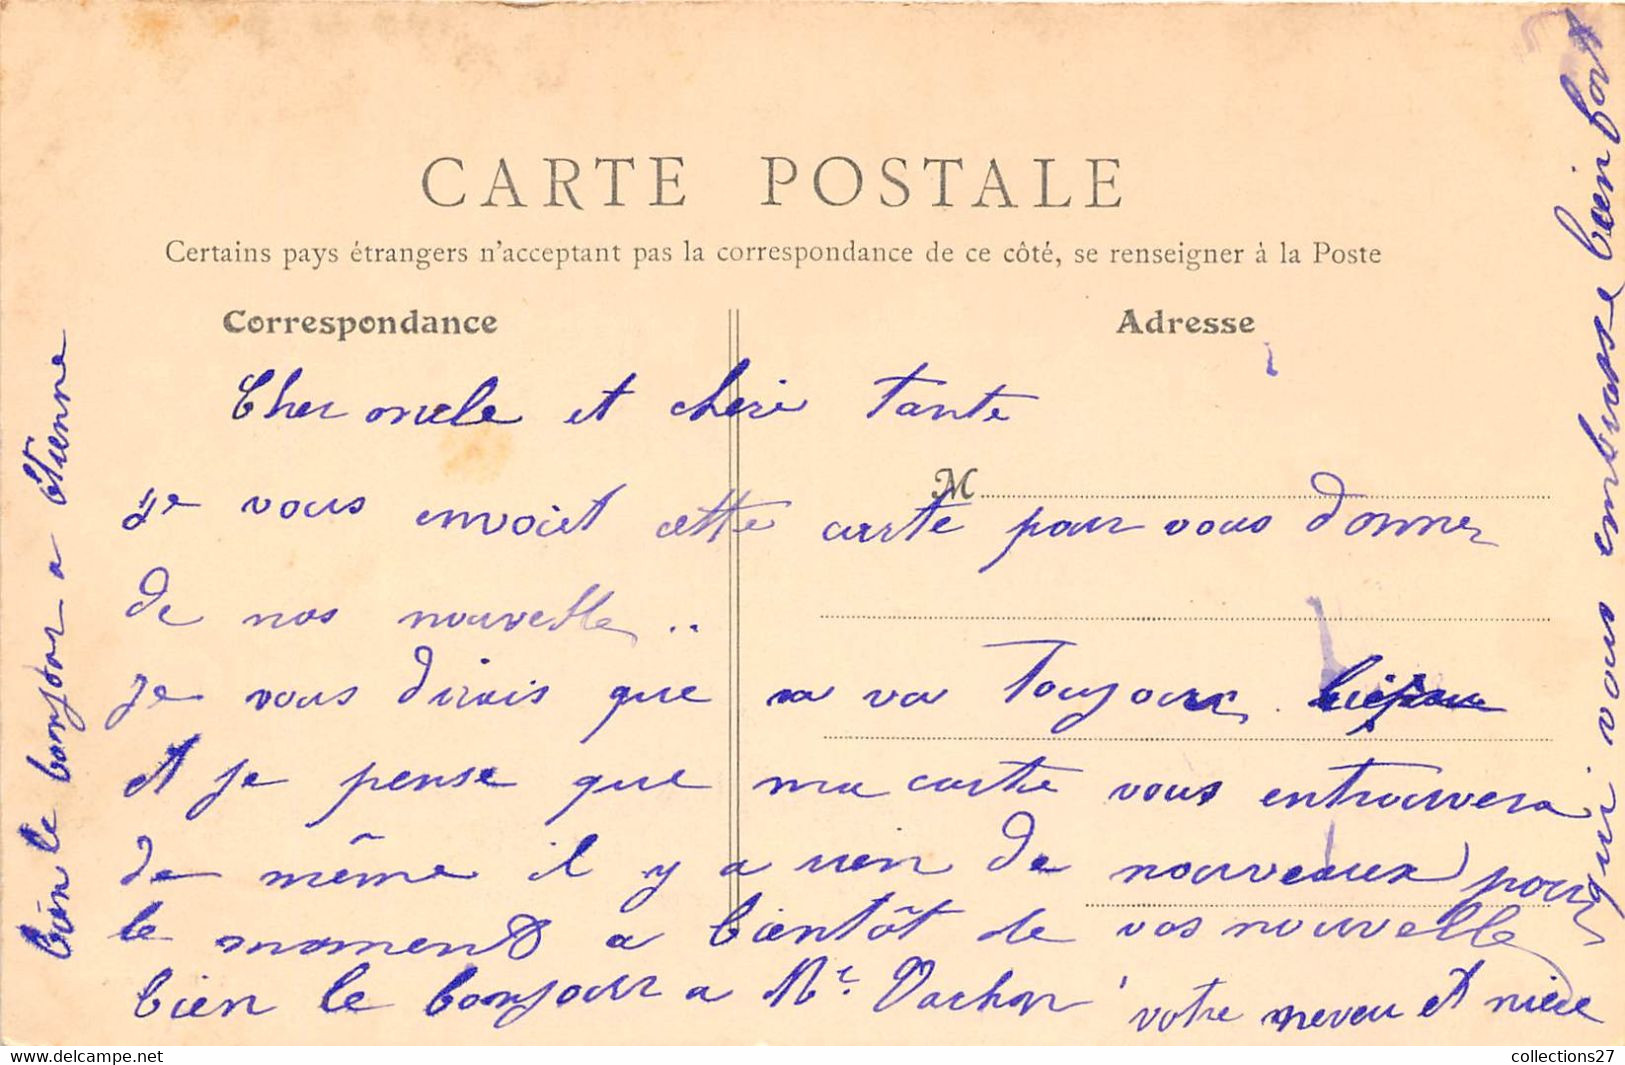 CARTE POSTALE
Certains pays étrangers n'acceptant pas la correspondance de ce côté, se renseigner à la Poste
Correspondance
Adresse
Cher oncle et chere Tante
M
je vous envoiet cette carte pour vous donner
de nos nouvelle ..
je vous dirais que sa va Toujours
et je pense que ma carte vous entrouvera
de même il y a rien de nouveaux pour
le moment a bientôt de vos nouvelle
bien le bonjour a Mr. Vachon votre neveu et niece
qui vous embrasse bien fort
bien le bonjour a étienne
collections27